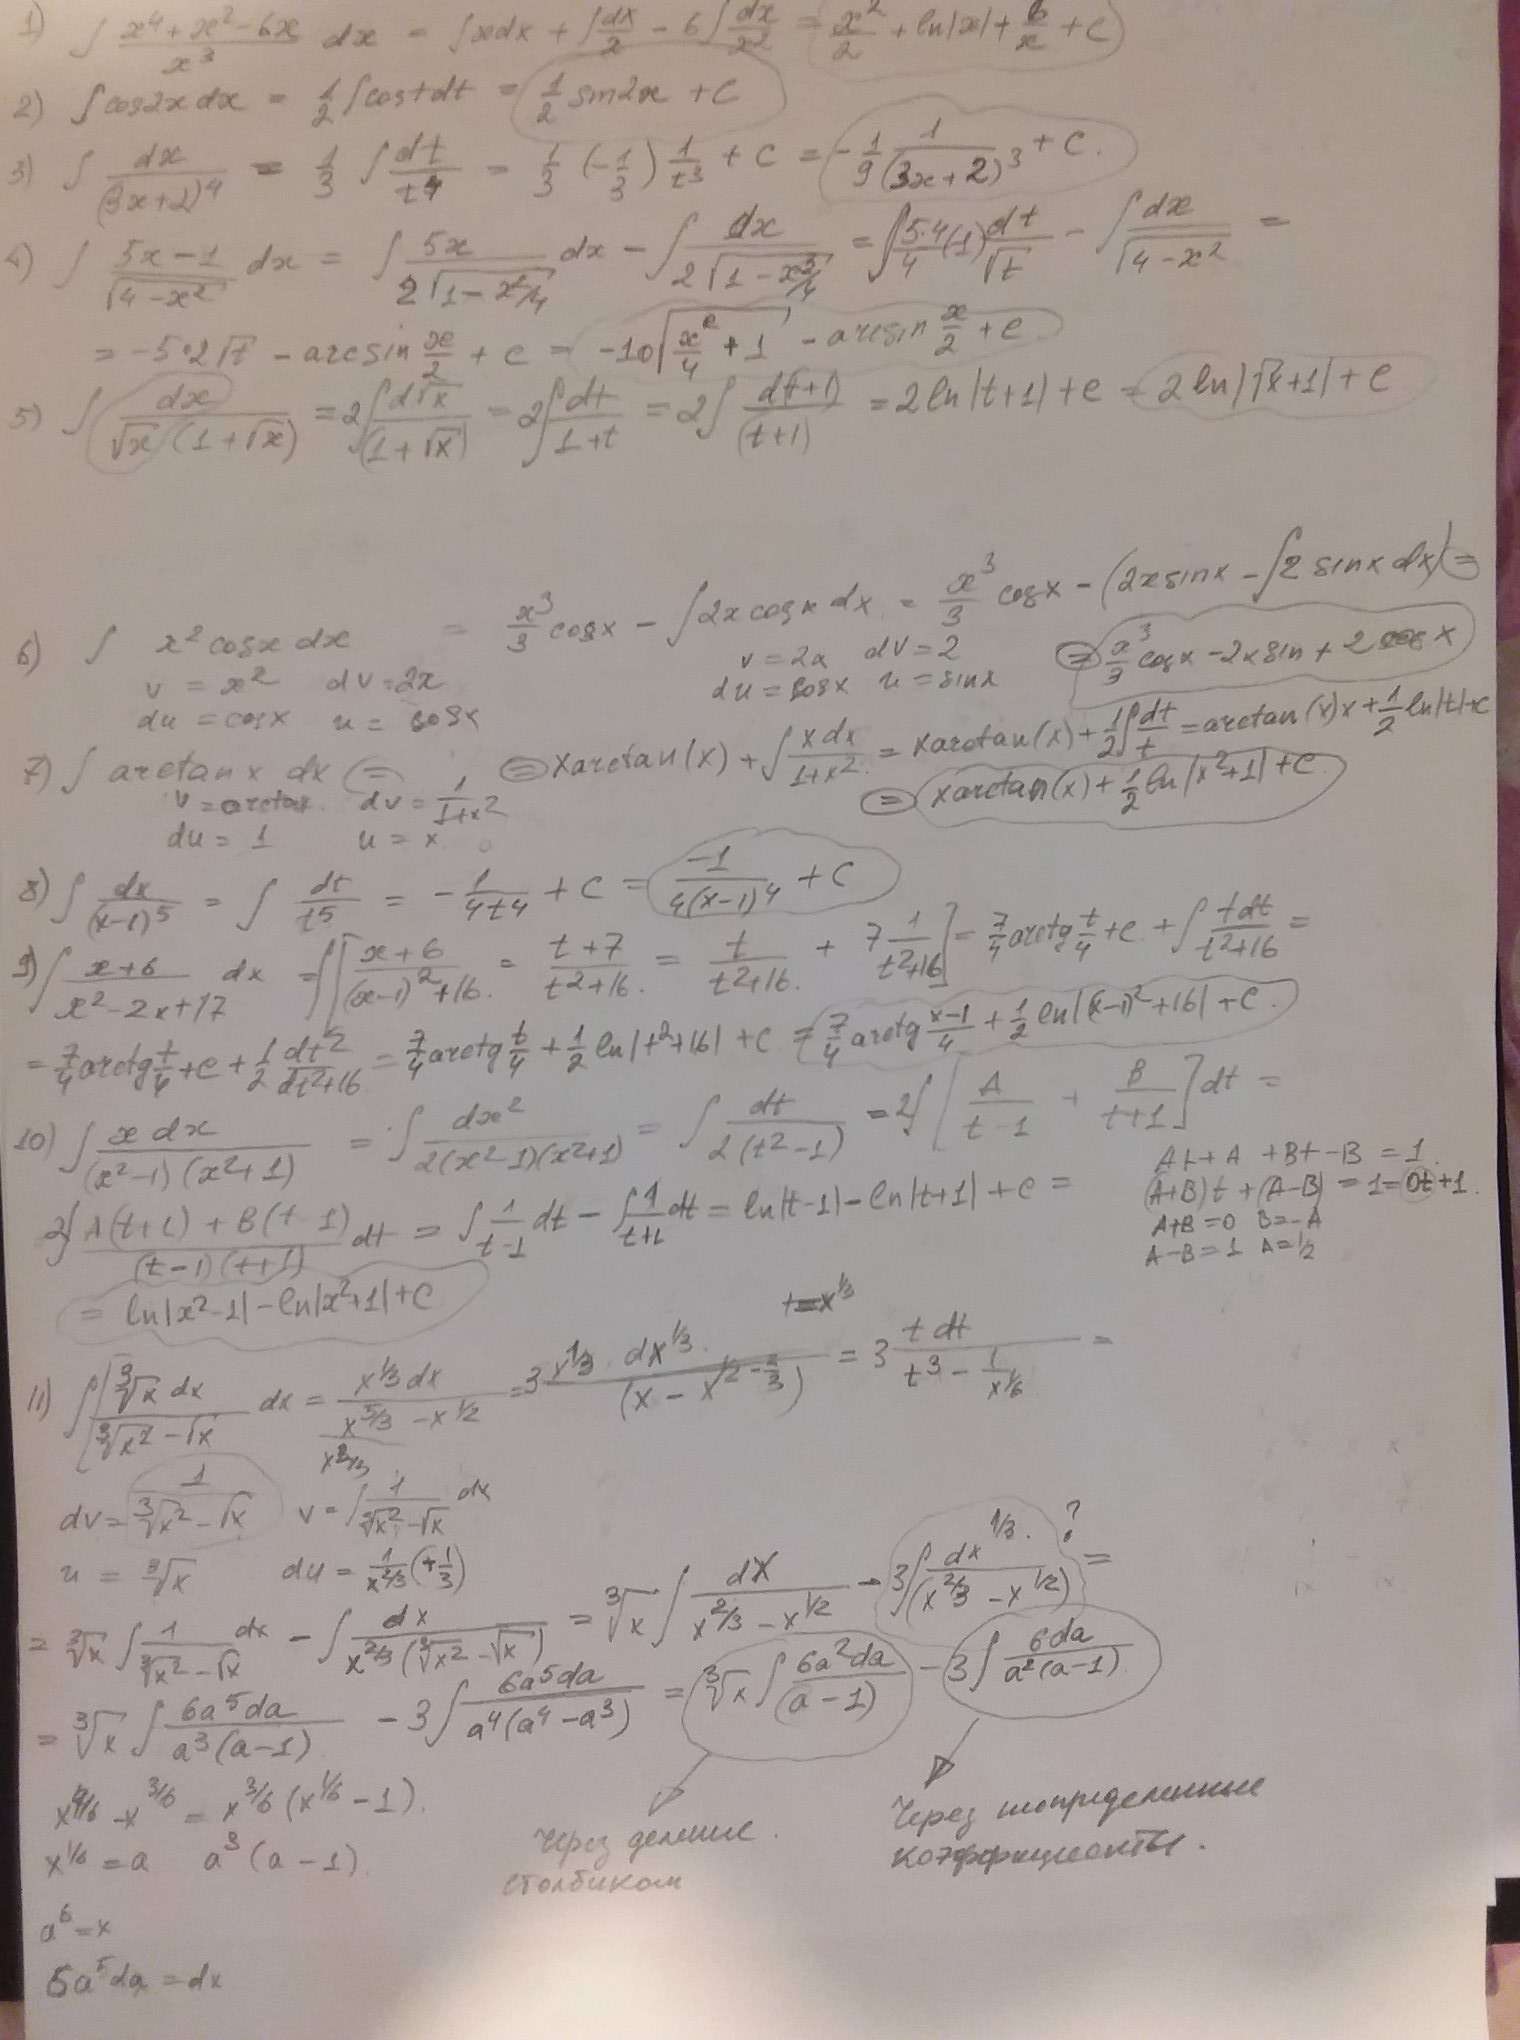 1) ∫ (x⁴ + x² - 6x)/x³ dx = ∫xdx + ∫dx/x - 6∫dx/x² = x²/2 + ln|x| + 6/x + C
2) ∫cos2x dx = 1/2 ∫cost dt = 1/2 sin2x + C
3) ∫ dx/(3x+2)⁴ = 1/3 ∫ dt/t⁴ = 1/3 (-1/3) 1/t³ + C = -1/9 1/(3x+2)³ + C.
4) ∫ (5x-1)/√(4-x²) dx = ∫ 5x/(2√(1-x²/4)) dx - ∫ dx/(2√(1-x²/4)) = ∫ 5·4/4 (-1) dt/√t - ∫ dx/√(4-x²) =
= -5·2√t - arcsin x/2 + C = -10√(x²/4 + 1) - arcsin x/2 + C
5) ∫ dx/(√x (1+√x)) = 2∫ d√x/(1+√x) = 2∫ dt/(1+t) = 2∫ d(t+1)/(t+1) = 2ln|t+1| + C = 2ln|√x+1| + C
6) ∫ x² cosx dx = x³/3 cosx - ∫2x cosx dx = x³/3 cosx - (2x sinx - ∫2 sinx dx) =
v = x² dv = 2x v = 2x dv = 2 = x³/3 cosx - 2x sin + 2 cos x
du = cosx u = cosx du = cosx u = sinx
7) ∫ arctan x dx = = x arctan(x) + ∫ xdx/(1+x²) = x arctan(x) + 1/2 ∫ dt/t = arctan(x)x + 1/2 ln|t| + C
v = arctax dv = 1/(1+x²) = x arctan(x) + 1/2 ln|x²+1| + C
du = 1 u = x
8) ∫ dx/(x-1)⁵ = ∫ dt/t⁵ = -1/(4t⁴) + C = -1/(4(x-1)⁴) + C
9) ∫ (x+6)/(x²-2x+17) dx = ∫[(x+6)/((x-1)²+16) = (t+7)/(t²+16) = t/(t²+16) + 7 1/(t²+16)] = 7/4 arctg t/4 + C + ∫ tdt/(t²+16) =
= 7/4 arctg t/4 + C + 1/2 dt²/(dt²+16) = 7/4 arctg t/4 + 1/2 ln|t²+16| + C = 7/4 arctg (x-1)/4 + 1/2 ln|(x-1)²+16| + C.
10) ∫ x dx/((x²-1)(x²+1)) = ∫ dx²/(2(x²-1)(x²+1)) = ∫ dt/(2(t²-1)) = 2∫ [A/(t-1) + B/(t+1)] dt =
At + A + Bt - B = 1.
2∫ (A(t+1) + B(t-1))/((t-1)(t+1)) dt = ∫ 1/(t-1) dt - ∫ 1/(t+1) dt = ln|t-1| - ln|t+1| + C = (A+B)t + (A-B) = 1 = 0t + 1.
A+B = 0 B = -A
A-B = 1 A = 1/2
= ln|x²-1| - ln|x²+1| + C
t = x^1/3
11) ∫ ∛x dx/(∛x² - √x) dx = x^1/3 dx/(x^5/3 - x^1/2) = 3 x^1/3 dx^1/3/(x - x^1/2-2/3) = 3 t dt/(t³ - 1/x^1/6) =
x^2/3
dv = 1/(∛x² - √x) v = ∫ 1/(∛x² - √x) dx
u = ∛x du = 1/x^2/3 (+1/3)
= ∛x ∫ 1/(∛x² - √x) dx - ∫ dx/(x^2/3 (∛x² - √x)) = ∛x ∫ dx/(x^2/3 - x^1/2) - 3∫ dx^1/3/(x^2/3 - x^1/2) ? =
= ∛x ∫ 6a⁵da/(a³(a-1)) - 3∫ 6a⁵da/(a⁴(a⁴-a³)) = ∛x ∫ 6a²da/(a-1) - 3∫ 6da/(a²(a-1))
x^4/6 - x^3/6 = x^3/6 (x^1/6 - 1).
x^1/6 = a a³(a-1).
Через деление
столбиком
Через неопределенные
коэффициенты.
a⁶ = x
6a⁵da = dx